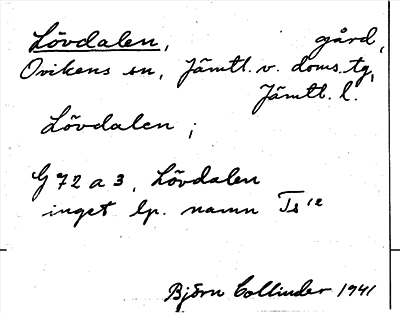 Lövdalen, gård,
Ovikens sn, Jämtl. v. doms. tg,
Jämtl. l.
Lövdalen ;
G 72 a 3, Lövdalen
inget lp. namn Ts¹²
Björn Collinder 1941